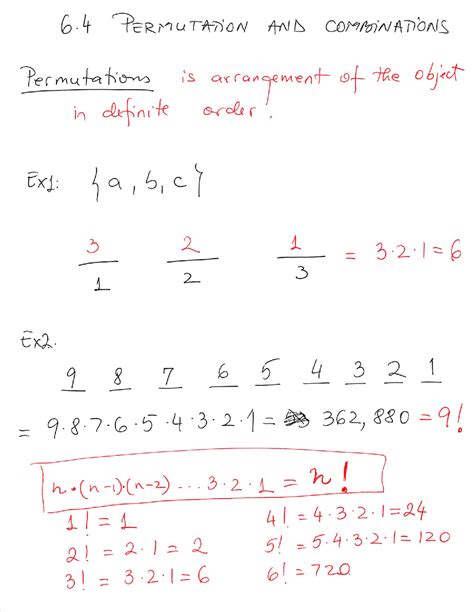 6.4 PERMUTATION AND COMBINATIONS
Permutations is arrangement of the object
in definite order!
Ex1: {a, b, c}
3 2 1 = 3·2·1=6
1 2 3
Ex2.
9 8 7 6 5 4 3 2 1
= 9·8·7·6·5·4·3·2·1 = 362,880 = 9!
n·(n-1)·(n-2) ... 3·2·1 = n!
1! = 1 4! = 4·3·2·1=24
2! = 2·1 = 2 5! = 5·4·3·2·1=120
3! = 3·2·1=6 6! = 720